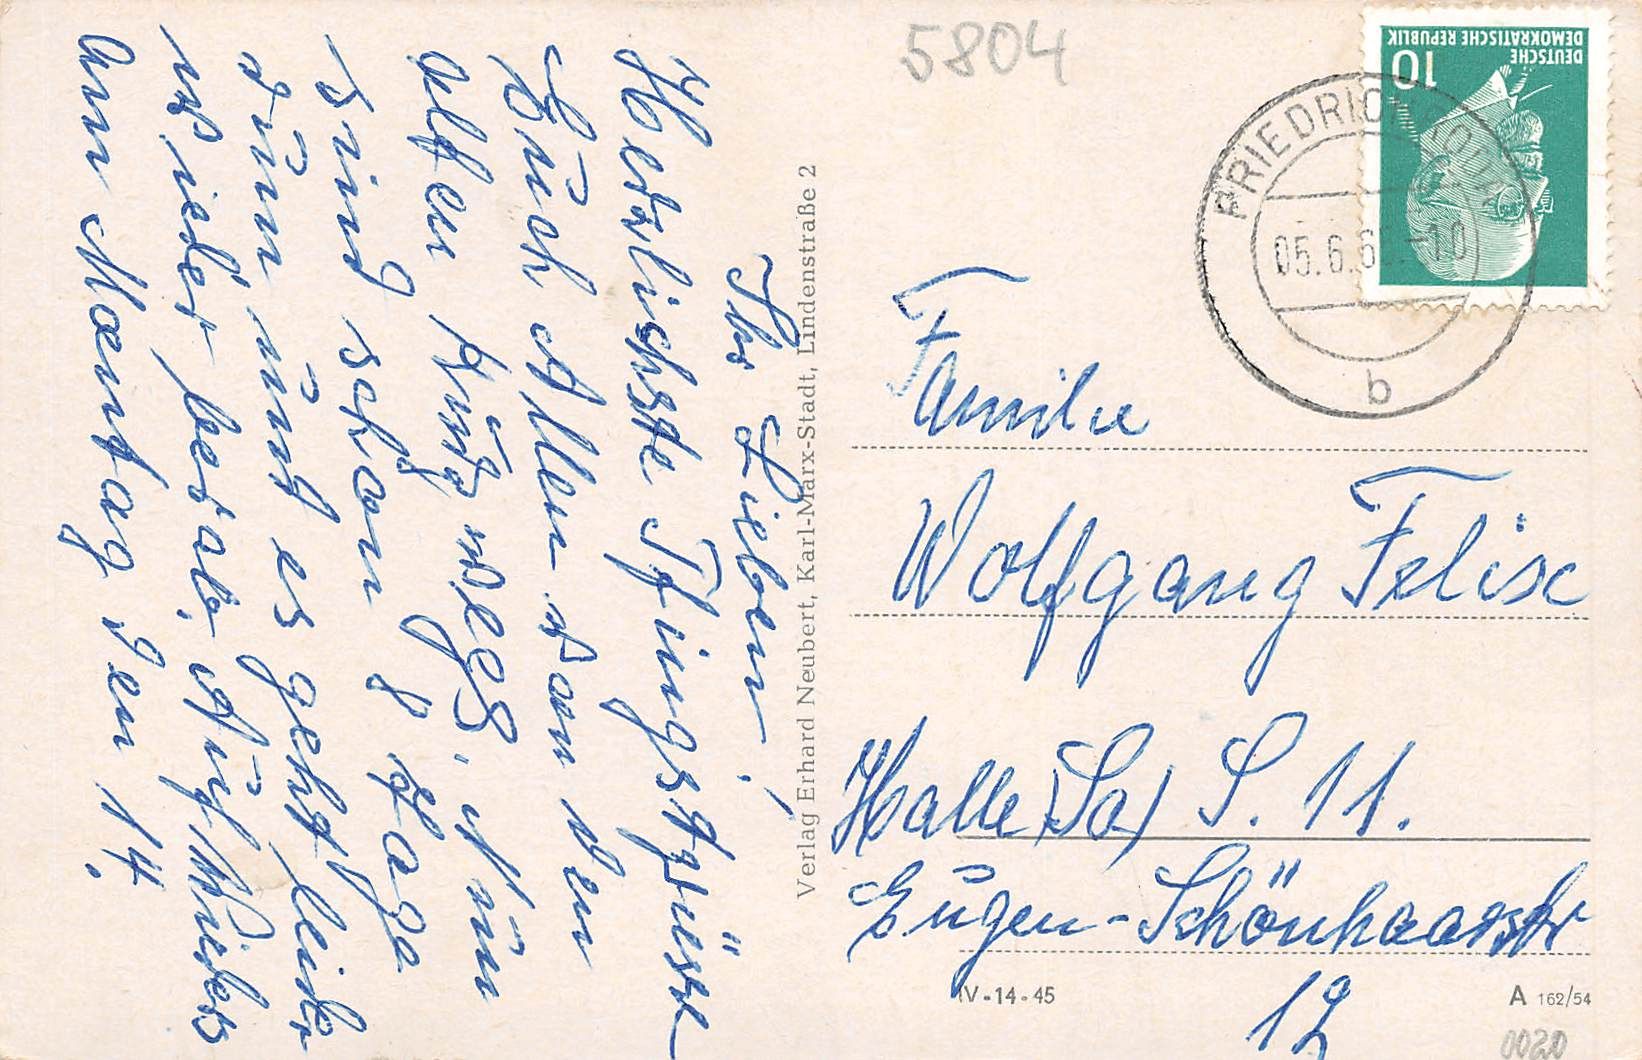 5804
DEUTSCHE
DEMOKRATISCHE REPUBLIK
10
05.6.6 -10
b
Ihr Lieben!
Herzlichste Pfingstgrüße
Euch Allen von den
alten Kuhzwegs. Nun
sind schon 8 Tage
rum und es geht leider
wieder bergab. Auf Wieders
am Montag den 14.
Verlag Erhard Neubert, Karl-Marx-Stadt, Lindenstraße 2
Familie
Wolfgang Felix
Halle (Sa) S. 11.
Eugen-Schönhaarstr
12
IV-14-45
A 162/54
0020